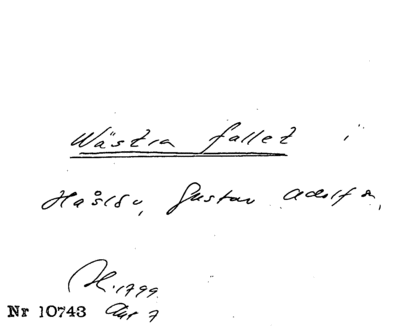 Wästra fallet i
Håslöv, Gustav Adolf s.
H. 1799
Nr 10743 Akt 7